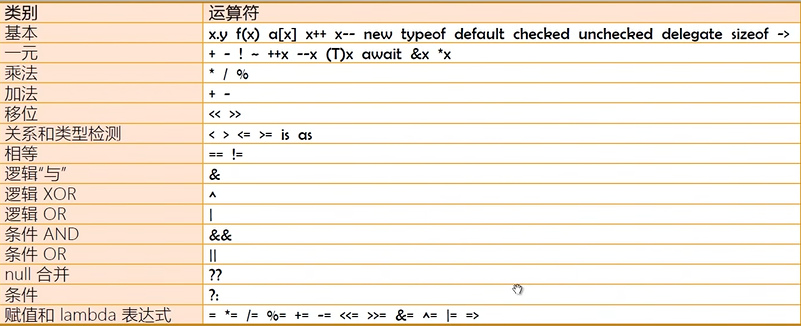 类别 运算符
基本 x.y f(x) a[x] x++ x-- new typeof default checked unchecked delegate sizeof ->
一元 + - ! ~ ++x --x (T)x await &x *x
乘法 * / %
加法 + -
移位 << >>
关系和类型检测 < > <= >= is as
相等 == !=
逻辑“与” &
逻辑 XOR ^
逻辑 OR |
条件 AND &&
条件 OR ||
null 合并 ??
条件 ?:
赋值和 lambda 表达式 = *= /= %= += -= <<= >>= &= ^= |= =>